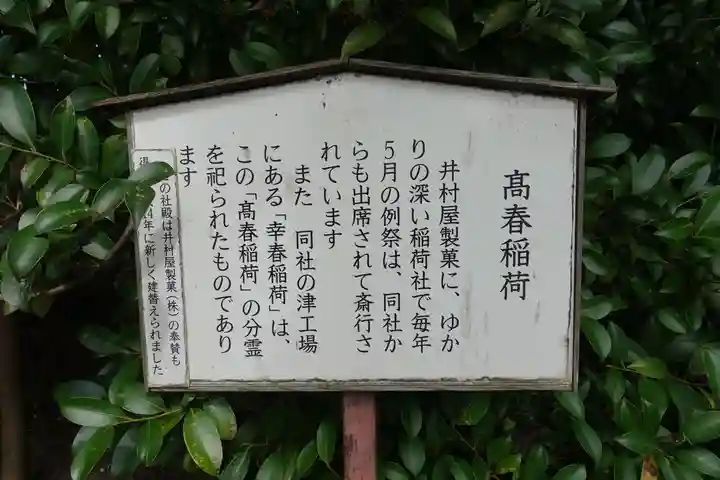 髙春稲荷
井村屋製菓に、ゆか
りの深い稲荷社で毎年
5月の例祭は、同社か
らも出席されて斎行さ
れています
また 同社の津工場
にある「幸春稲荷」は、
この「髙春稲荷」の分霊
を祀られたものであり
ます
の社殿は井村屋製菓(株)の奉賛も
得
4年に新しく建替えられました